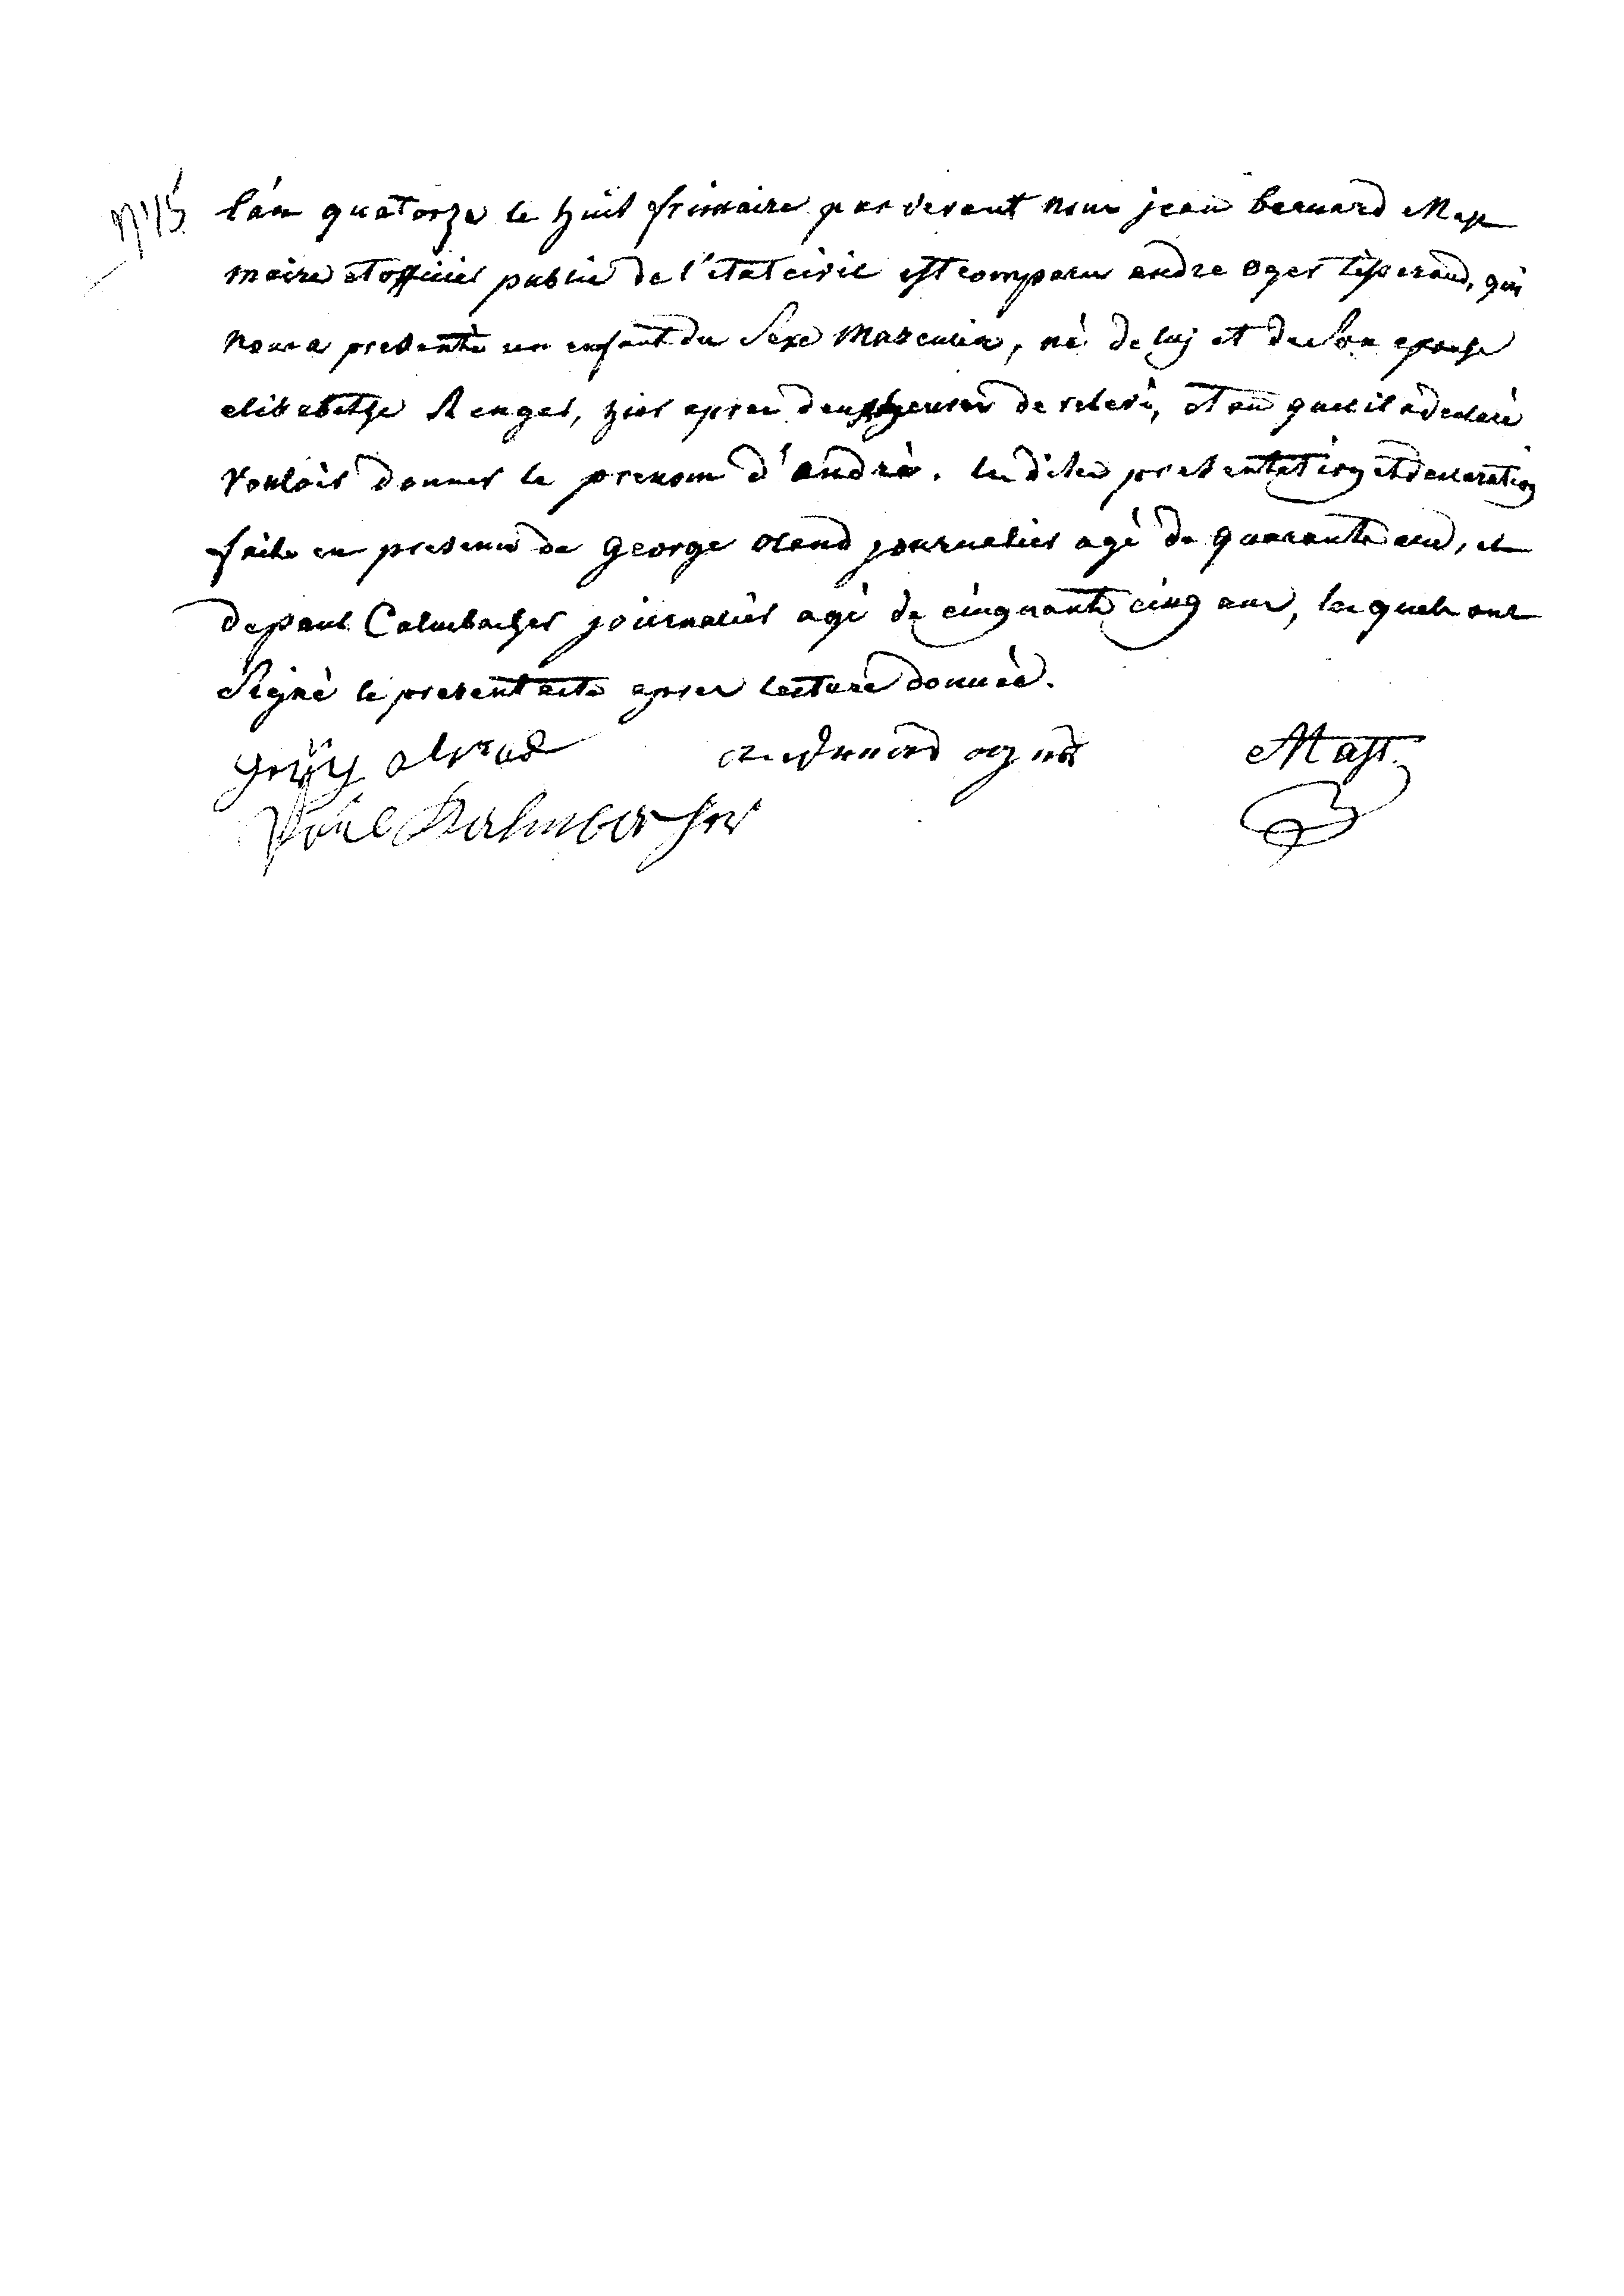 N° 15
l'an quatorze le huit frimaire par devant nous jean bernard Mast
maire et officier public de l'etat civil est comparu andre oger tisserand, qui
nous a presenté un enfant du Sexe Masculin, né de luj et de Son epouse
elisabethe Renger, hier apres deux heures de relevé, et au quel il a declaré
vouloir donner le prenom d'andré. les dites presentation et declaration
faite en presence de George oland journalier agé de quarante ans, et
de paul Calmbacher journalier agé de cinquante cinq ans, lesquels ont
Signé le present acte apres lecture donnée.
Mast
Paul Kalmbacher